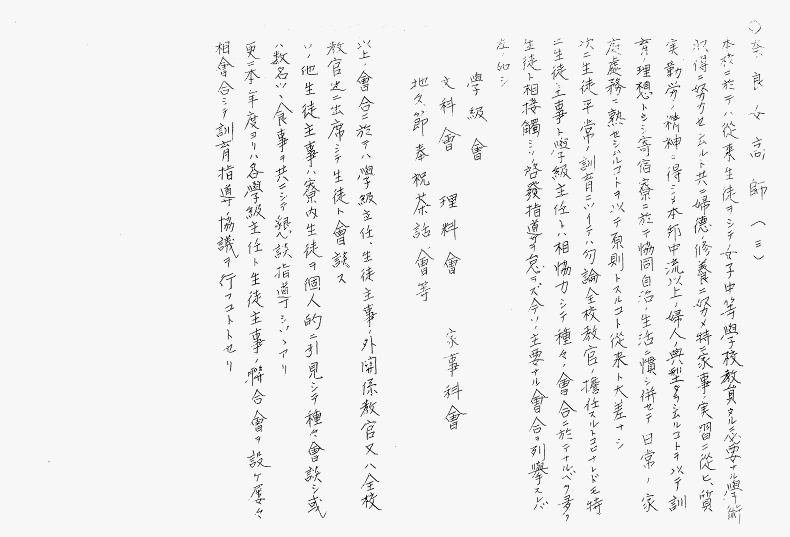 ○奈良女高師（三）
本校ニ於テハ従来生徒ヲシテ女子中等學校教員タルニ必要ナル學術
ノ習得ニ努力セシムルト共ニ婦德ノ修養ニ努カメ特ニ家事ノ実習ニ從ヒ、質
実勤労ノ精神ヲ得シメ本邦中流以上ノ婦人ノ典型タラシムルコトヲ以テ訓
育ノ理想トシ寄宿寮ニ於テ協同自治ノ生活ニ慣シ併セテ日常ノ家
庭處務ニ熟セシムルコトヲ以テ原則トスルコト従来ト大差ナシ
次ニ生徒平常ノ訓育ニツイテハ勿論全校教官ノ擔任スルトコロナレドモ特
ニ生徒主事ト學級主任トハ相恊力シテ種々ノ會合ニ於テナルベク多ク
生徒ト相接觸シツヽ啓發指導ヲ怠ラズ今ソノ主要ナル會合ヲ列擧スレバ
左ノ如シ
學級會
文科會　理科會　家事科會
地久節奉祝茶話會等
以上ノ會合ニ於テハ學級主任、生徒主事ノ外関係教官又ハ全校
教官之ニ出席シテ生徒ト會談ス
ソノ他生徒主事ハ寮内生徒ヲ個人的ニ引見シテ種々會談シ或
ハ数名ヅヽ食事ヲ共ニシテ懇談指導シツヽアリ
更ニ本年度ヨリハ各學級主任ト生徒主事ノ聯合會ヲ設ケ屡々
相會合シテ訓育指導ノ協議ヲ行フコトトセリ